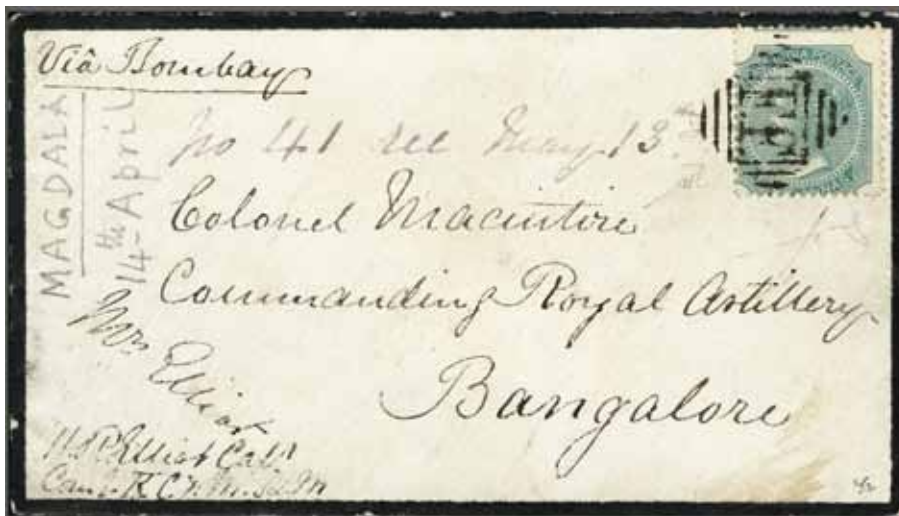 Viâ Bombay
MAGDALA
14th April
No 41 rec May 13
Colonel Macintire
Commanding Royal Artillery
Bangalore
Mrs Elliot
FF
1/2